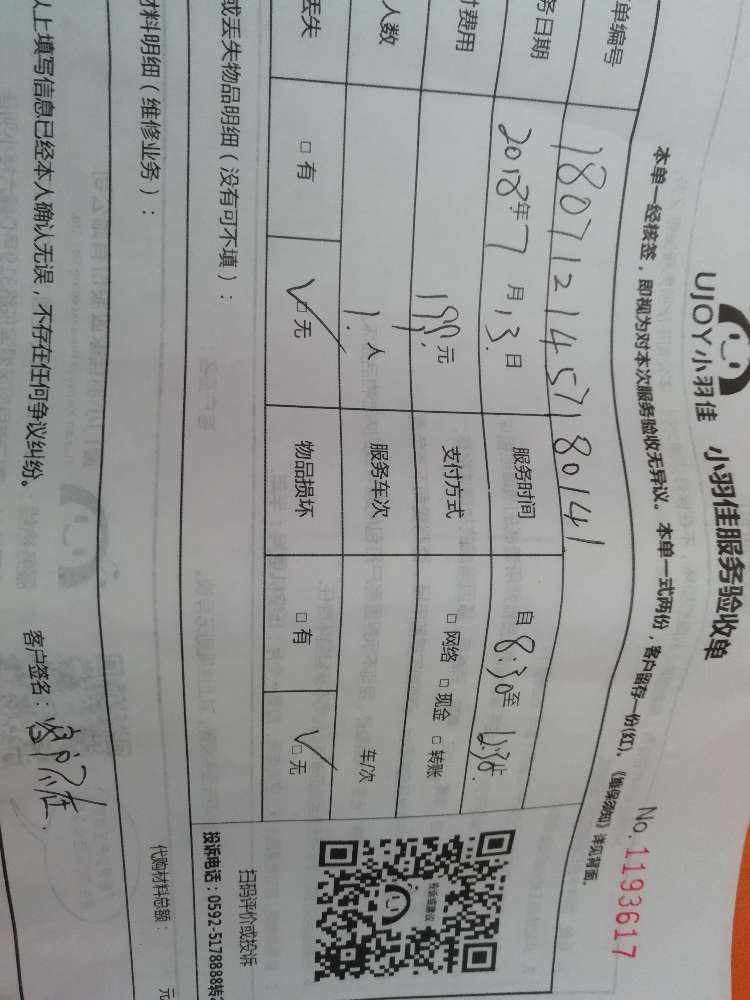 UJOY小羽佳 小羽佳服务验收单
No.1193617
本单一经核签，即视为对本次服务验收无异议。本单一式两份，客户留存一份(红)。《维保须知》详见背面。
单编号 1807121457180141
务日期 2018年7月13日 服务时间 自8:30至12:30
费用 199元 支付方式 □网络 □现金 □转账
人数 1人 服务车次 车/次
丢失 □有 □无 物品损坏 □有 □无
投诉或建议
扫码评价或投诉
投诉电话：0592-5178888转2
或丢失物品明细（没有可不填）：
材料明细（维修业务）：
代购材料总额： 元
以上填写信息已经本人确认无误，不存在任何争议纠纷。 客户签名：